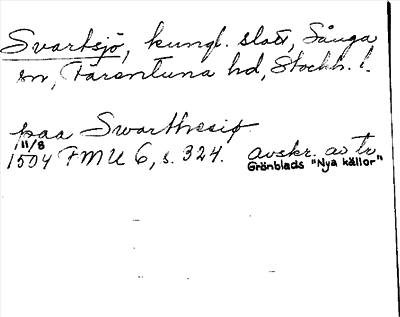 Svartsjö, kungl. slott, Sånga
sn, Färentuna hd, Stockh. l.
paa Swarthesiø
11/8
1504 FMU 6, s. 324. avskr. av tr.
Grönblads "Nya källor"